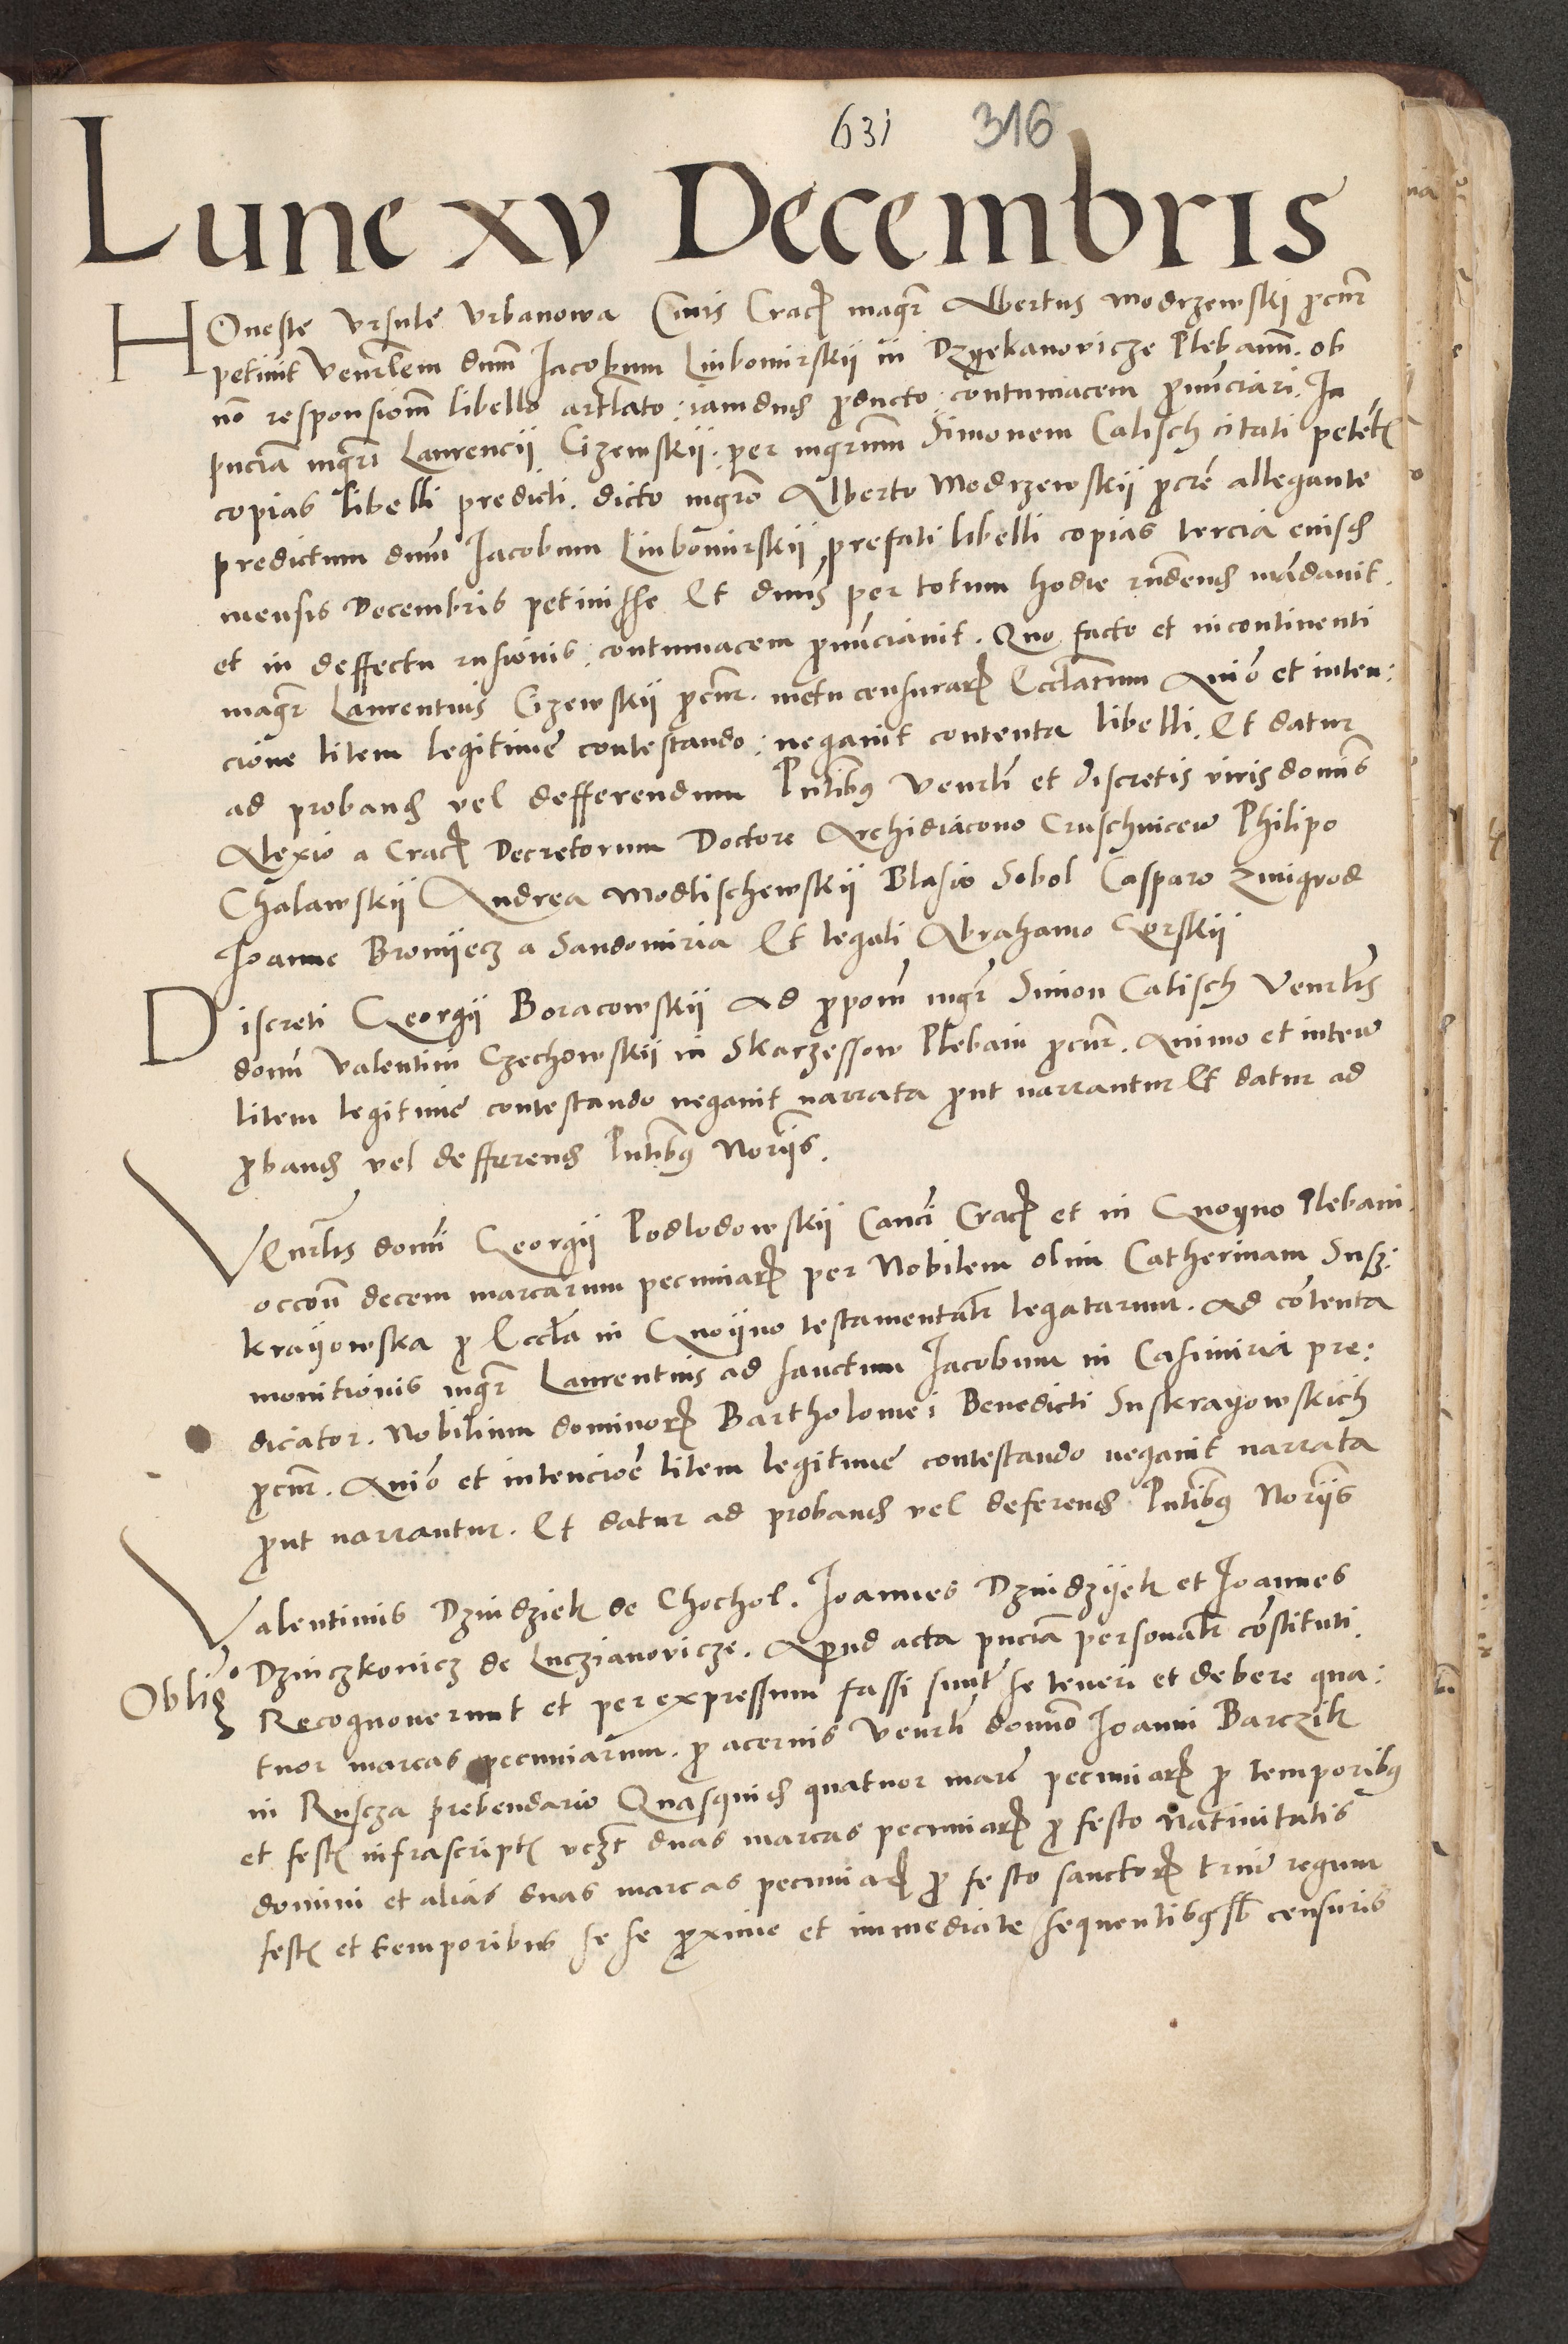 631 316
Lune xv Decembris
Honeste Ursule Urbanowa Civis Crac magr Albertus Modrzewskij procur
petivit venrlem dnm Jacobum Liubomirskij in Dzyekanovicze Plebanum. ob
no responsionem libello artlato: iamdud producto: contumacem pronunciari. In
pncia mgri Laurencij Cizewskij. per mgrum Simonem Calisch citati petentis
copias libelli predicti. dicto mgro Alberto Modrzewskij procre allegante
predictum dnm Jacobum Liubomirskij prefati libelli copias tercia eiusd
mensis Decembris petiuisse Et dnus per totum hodie rndend mandavit.
et in deffectu rnsionis: contumacem pronunciavit. Quo facto et incontinenti
magr Laurentius Cizewskij procur. metu censurarum Ecclarum Animo et inten:
cione litem legitime contestando: negavit contenta libelli. Et datur
ad proband vel defferendum Pntibus venrli et discretis viris dominis
Alexio a Crac Decretorum Doctore Archidiacono Cruschvicen Philipo
Chalawskij Andrea Modlischewskij Blasio Sobol Casparo Zmigrod
Joanne Bronijecz a Sandomiria Et legali Abrahamo Gorskij
Discreti Georgij Boracowskij ad propom mgr Simon Calisch Venrlis
domi Valentini Czechowskij in Skarzessow Plebani procur. Animo et inten
litem legitime contestando negavit narrata prout narrantur Et datur ad
proband vel defferend Pntibus Norijs.
Venrlis domi Georgij Podlodowskij Canci Crac et in Gnoyno Plebani
occone decem marcarum pecuniarum per Nobilem olim Catherinam Susz:
krayowska pro Eccla in Gnoijno testamentalr legatarum. ad contenta
monitionis mgr Laurentius ad sanctum Jacobum in Casimiria pre:
dicator. Nobilium dominorum Bartholomei Benedicti Suskrayowskich
procur. Animo et intencione litem legitime contestando negavit narrata
prout narrantur. Et datur ad proband vel deferend Pntibus Norijs
Valentinus Dziudziek de Chochol. Joannes Dziudzijek et Joannes
Dziuczkovicz de Luczianovicze. Apud acta pncia personalr constituti.
Obligo Recognoverunt et per expressum fassi sunt se teneri et debere qua:
tuor marcas pecuniarum. pro acervis venrli domino Joanni Barczik
in Ruscza prebendario Quasquid quatuor marcas pecuniarum pro temporibus
et festis infrascriptis vczt duas marcas pecuniarum pro festo Nativitatis
domini et alias duas marcas pecuniarum pro festo sanctorum trium regum
festis et temporibus se se proxime et immediate sequentibus sb censuris